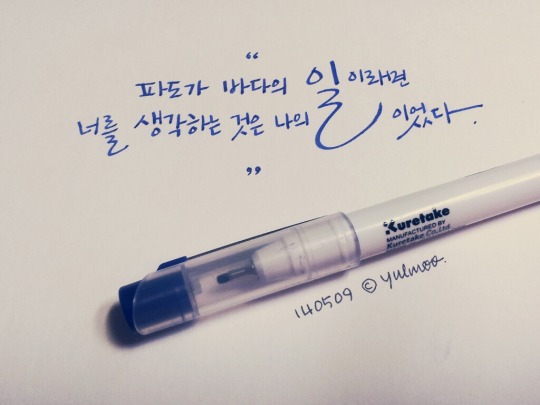 “
파도가 바다의 일이라면
너를 생각하는 것은 나의 일이었다.
”
Kuretake
MANUFACTURED BY
Kuretake Co.,Ltd
140509 © yulmoo.